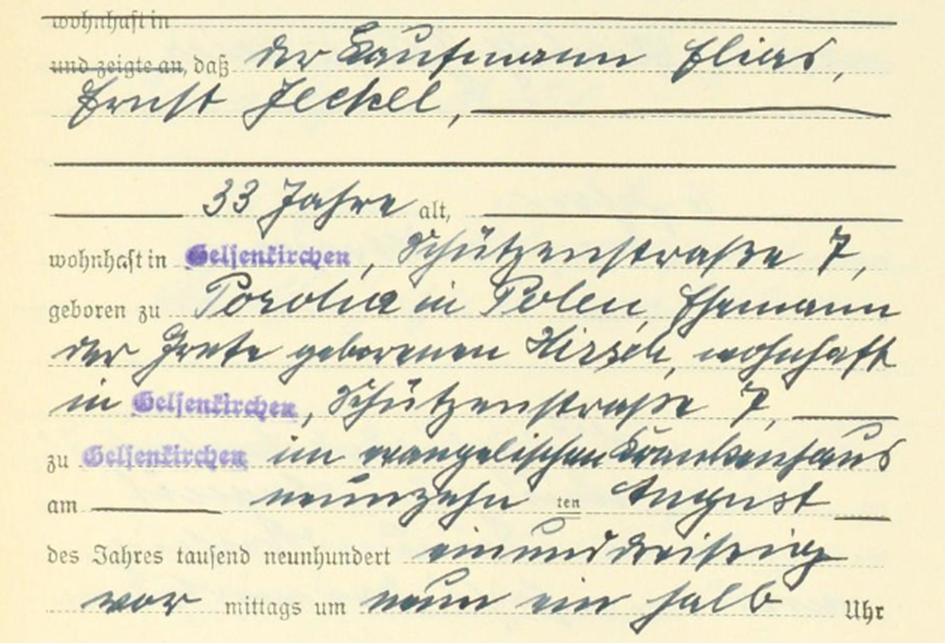 wohnhaft in
und zeigte an, daß der Kaufmann Elias,
Ernst Jeckel,
33 Jahre alt,
wohnhaft in Gelsenkirchen, Schützenstraße 7,
geboren zu in Polen, Ehemann
der Grete geborenen Hirsch, wohnhaft
in Gelsenkirchen, Schützenstraße 7,
zu Gelsenkirchen im evangelischen Krankenhaus
am neunzehn ten August
des Jahres tausend neunhundert einunddreißig
vor mittags um neun ein halb Uhr